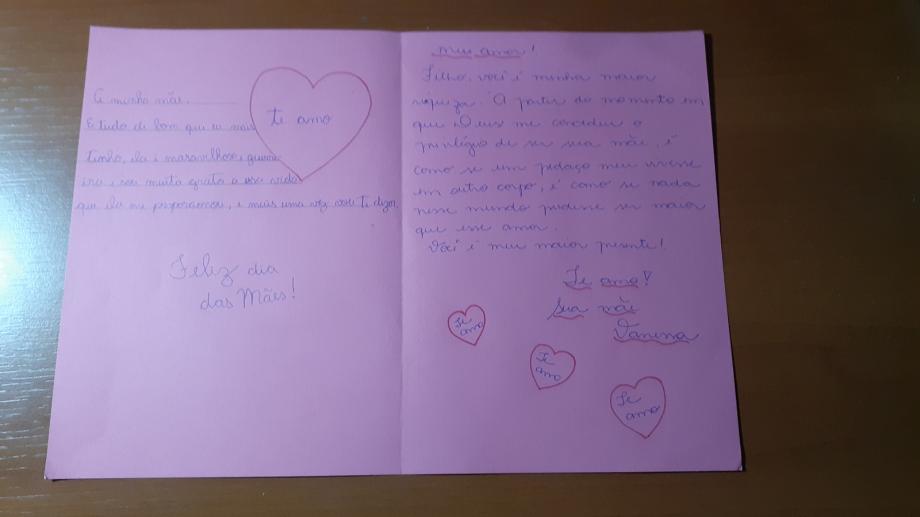 A minha mãe.........
E tudo de bom que eu mais
te amo
tinho, ela é maravilhosa, guerre
ira e sou muita grata a essa vida
que ela me proporcionou, e mais uma vez vou ti dizer
Feliz dia
das Mães!
meu amor!
Filho, você é minha maior
riqueza. A partir do momento em
que Deus me concedeu o
privilégio de ser sua mãe, é
como se um pedaço meu vivesse
em outro corpo, é como se nada
nesse mundo pudesse ser maior
que esse amor.
Você é meu maior presente!
Te amo!
Sua mãe
Vanina
Te
amo
Te
amo
Te
amo